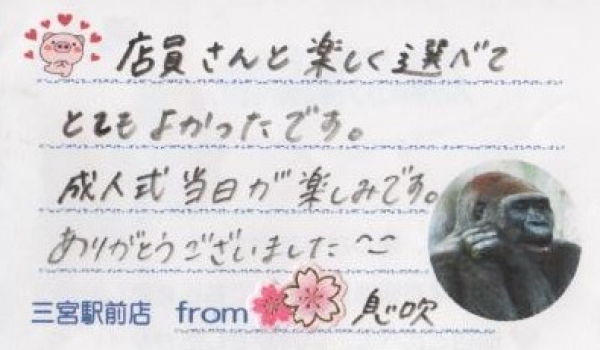 店員さんと楽しく選べて
とてもよかったです。
成人式当日が楽しみです。
ありがとうございました^^
三宮駅前店 from 息吹